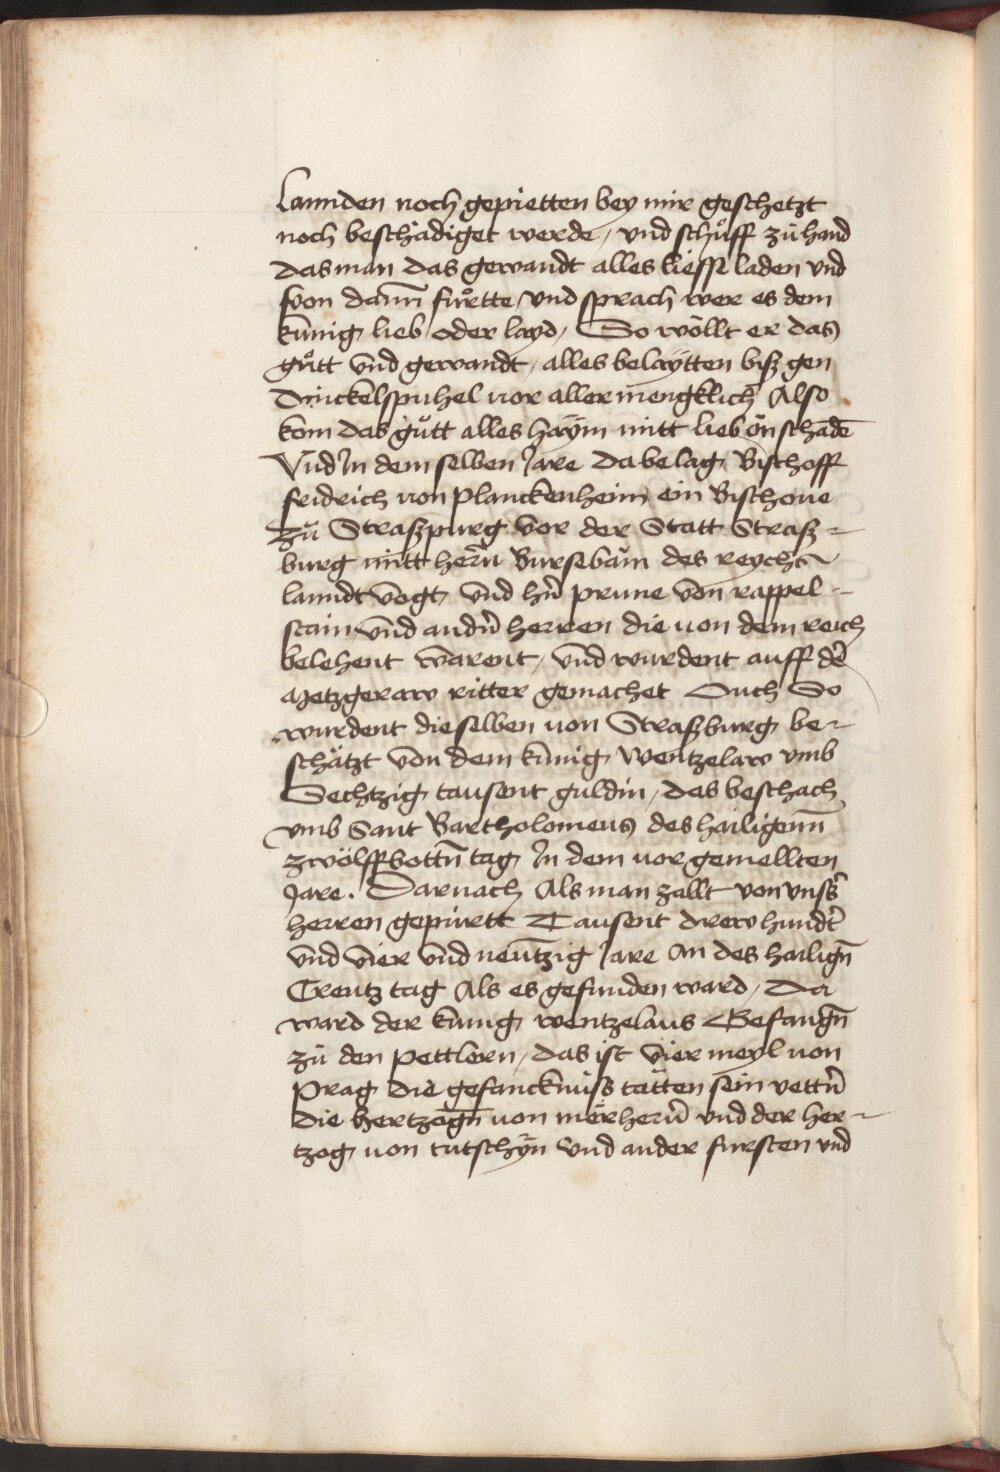 lannden noch gepietten bey mir geschetzt
noch beschädiget werde / vnd schůff zůhand
das man das gewandt alles liesse laden vnd
von dann̄ fůrtte / vnd sprach wer es dem
kunig lieb oder layd / So wöllt er das
gůtt vnd gewandt / alles belaytten bisz gen
Dinckelspuhel vor aller mengklich Also
kom das gůtt alles haÿm mitt lieb on schadē
Vnd In dem selben Jare Da belag Bischoff
fridrich von planckenheim ein Bischoue
Zů Straszpurg vor der Statt Strasz-
burg mitt herñ Bursebain des reychs
lanndt vogt vnd hñ prune von rappel-
stain vnd andñ herren die von dem reich
belehent warent / vnd wurdent auff dē
Metzgeraw ritter gemachet Ouch So
wurdent dieselben von Straszburg be-
schätzt von dem kunig Wentzelaw vmb
Sechtzig tausent guldin / das beschach
vmb Sant Bartholomeus des hailigenn̄
zwölffbottn̄ tag In dem vor gemellten
Jare . Darnach Als man zallt von vnsr̄
herren gepurtt Tausent drew hundt̄
vnd vier vnd neuntzig Jare An des hailign̄
Creutz tag Als es gefunden ward / Da
ward der kunig wentzelaus Gefangn̄
zů den pettlern / das ist vier meyl von
Prag die gefancknuss tätten sein vettr̄
die hertzogn̄ von merhern̄ vnd der her-
tzog von tutschÿn vnd ander fursten vnd